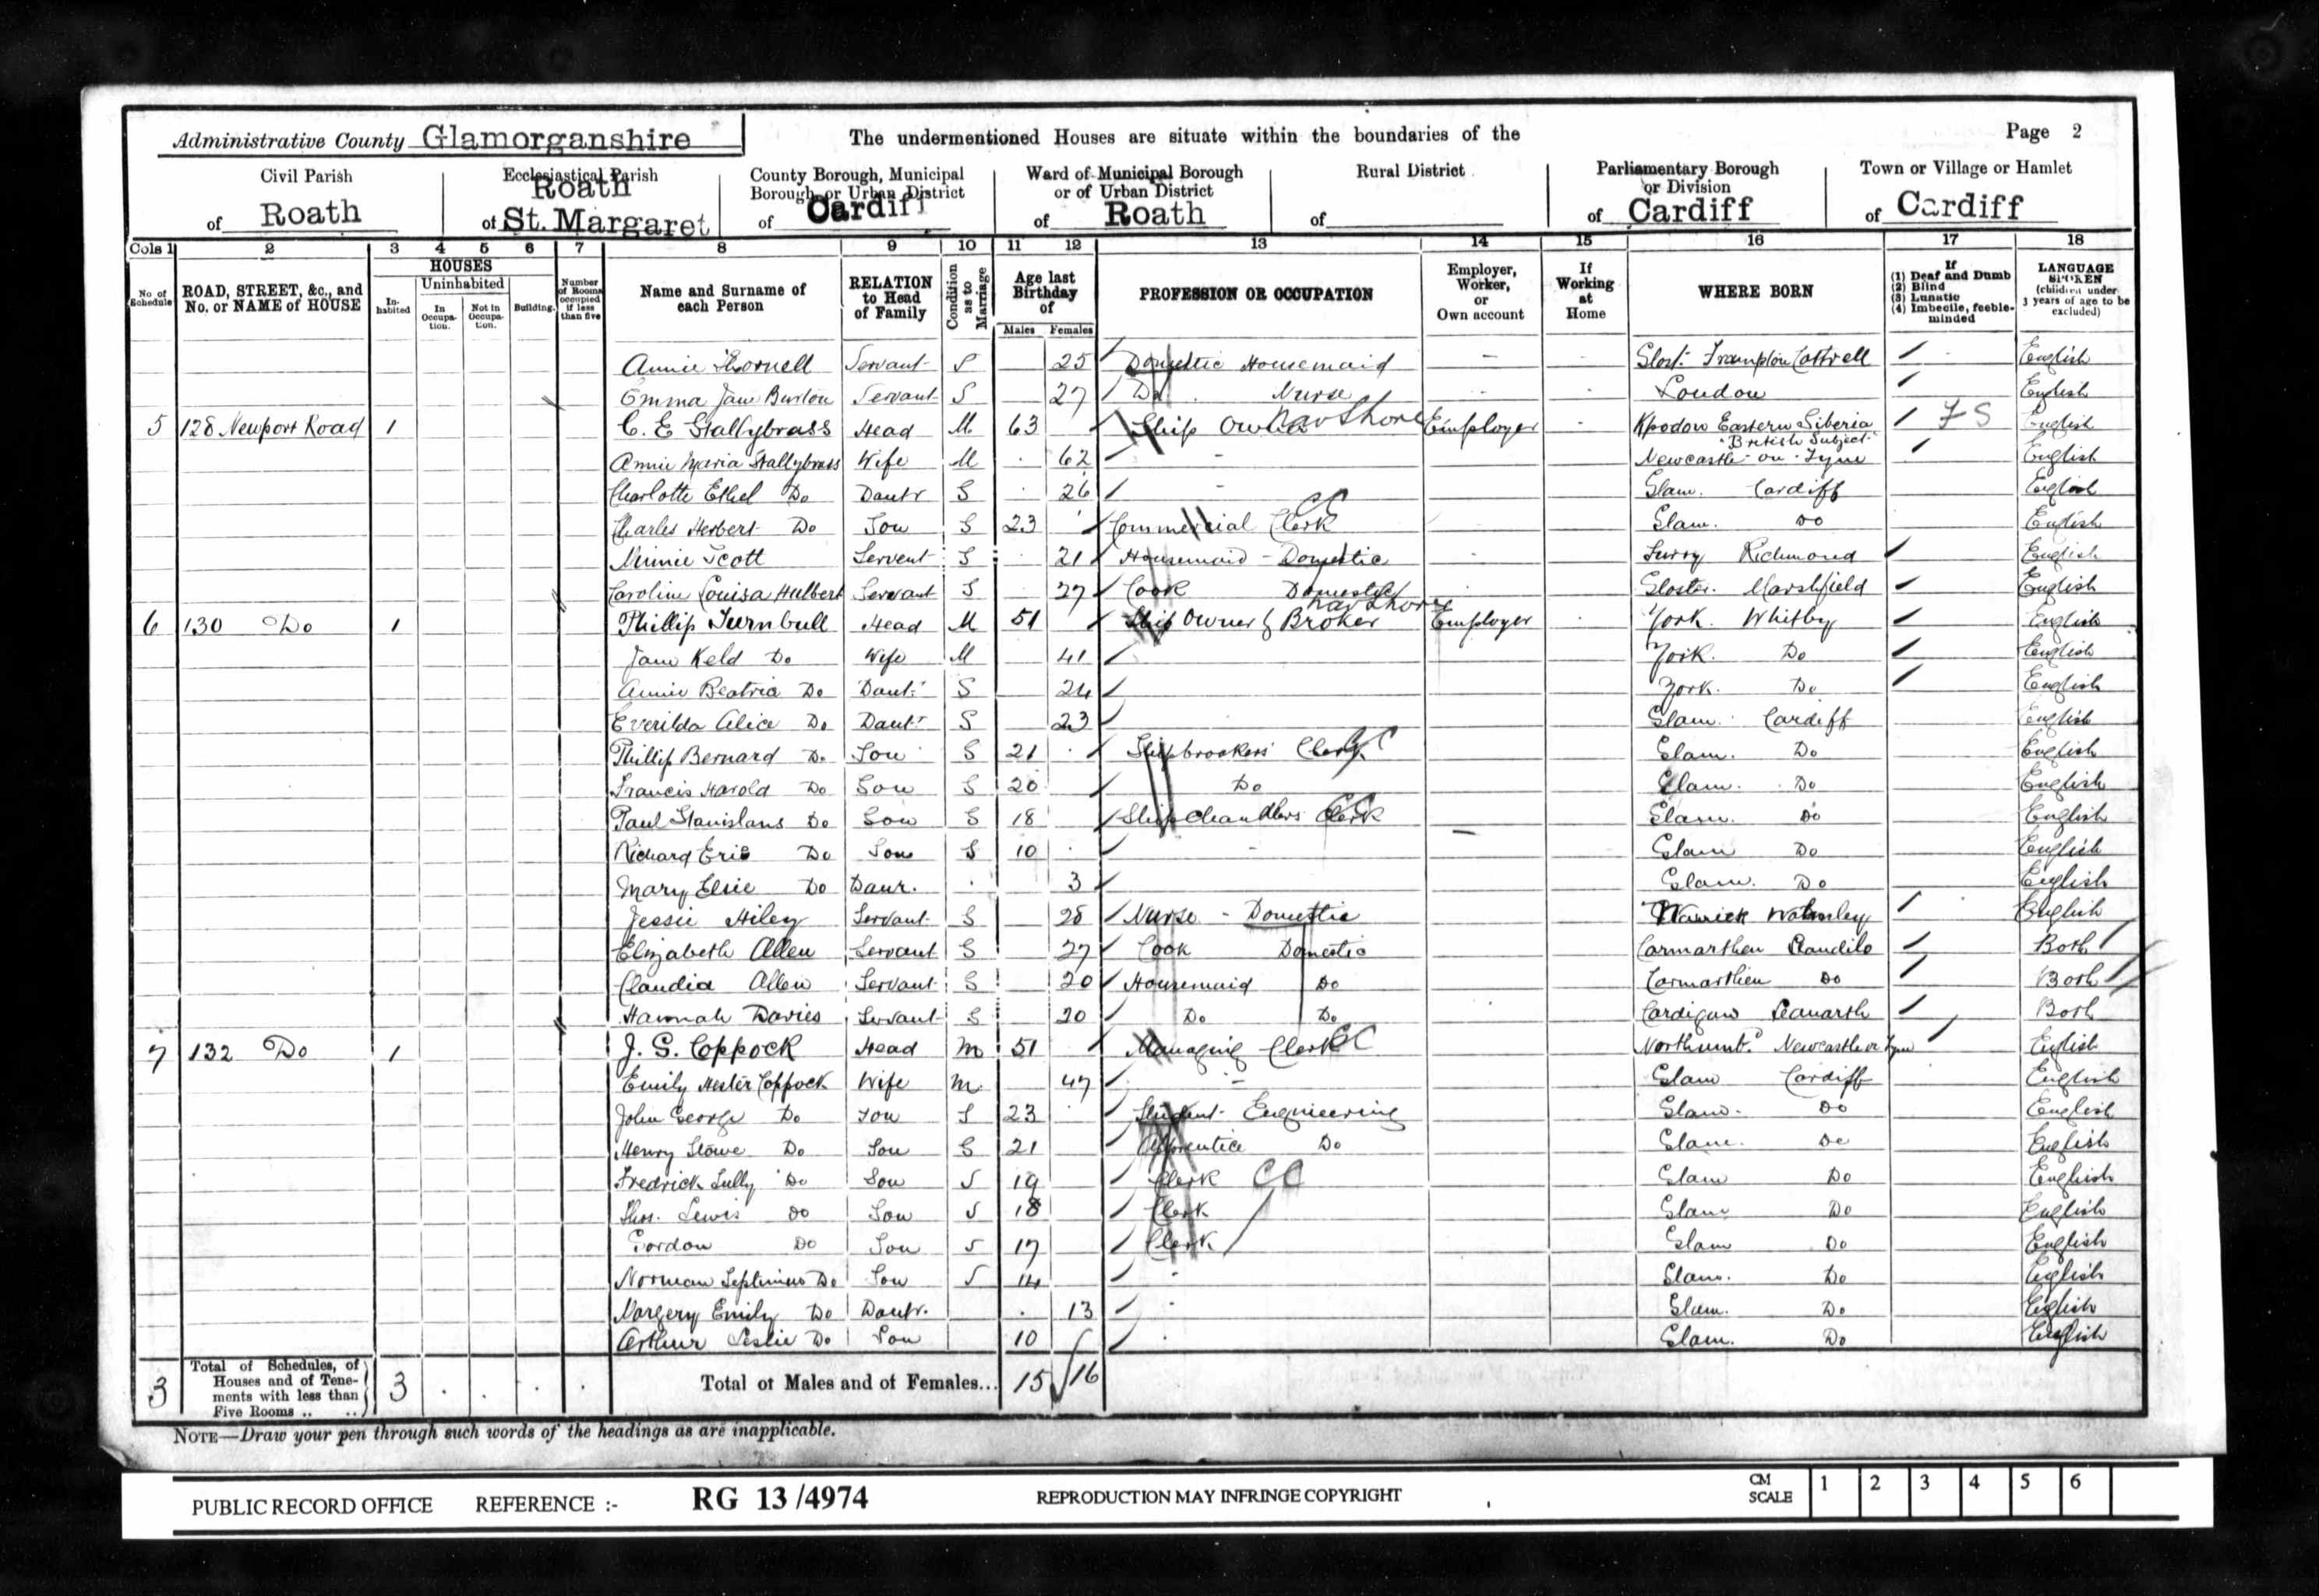 Administrative County Glamorganshire
The undermentioned Houses are situate within the boundaries of the
Page 2
Civil Parish of Roath
Ecclesiastical Parish of Roath St. Margaret
County Borough, Municipal Borough or Urban District of Cardiff
Ward of Municipal Borough or of Urban District of Roath
Rural District of
Parliamentary Borough or Division of Cardiff
Town or Village or Hamlet of Cardiff
Cols 1 2 3 4 5 6 7 8 9 10 11 12 13 14 15 16 17 18
No of Schedule
ROAD, STREET, &c., and No. or NAME of HOUSE
HOUSES
Inhabited
Uninhabited
In Occupation.
Not in Occupation.
Building.
Number of Rooms occupied if less than five
Name and Surname of each Person
RELATION to Head of Family
Condition as to Marriage
Age last Birthday of
Males Females
PROFESSION OR OCCUPATION
Employer, Worker, or Own account
If Working at Home
WHERE BORN
If (1) Deaf and Dumb (2) Blind (3) Lunatic (4) Imbecile, feeble-minded
LANGUAGE SPOKEN (children under 3 years of age to be excluded)
Annie Thornell Servant S 25 Domestic Housemaid Glost. Frampton Cottrell English
Emma Jane Burton Servant S 27 Do Nurse London English
5 128 Newport Road 1 C. E Stallybrass Head M 63 Ship Owner Nav Shore Employer Kpodow Eastern Siberia FS English
British Subject
Annie Maria Stallybrass Wife M 62 Newcastle-on-Tyne English
Charlotte Ethel Do Dautr S 26 Glam. Cardiff English
Charles Herbert Do Son S 23 Commercial Clerk CC Glam. Do English
Minnie Scott Servent S 21 Housemaid - Domestic Surry Richmond English
Caroline Louisa Hulbert Servant S 27 Cook Domestic Gloster. Marshfield English
6 130 Do 1 Phillip Turnbull Head M 51 Ship Owner & Broker Nav Shore Employer York. Whitby English
Jane Keld Do Wife M 41 York. Do English
Annie Beatric Do Daut. S 24 York. Do English
Everilda Alice Do Daut. S 23 Glam. Cardiff English
Phillip Bernard Do Son S 21 Shipbrookers Clerk CC Glam. Do English
Francis Harold Do Son S 20 Do Glam. Do English
Paul Stanislaus Do Son S 18 Ship Chandlers Clerk CC Glam. Do English
Richard Eric Do Son S 10 Glam Do English
Mary Elsie Do Daur. 3 Glam. Do English
Jessie Hiley Servant S 28 Nurse - Domestic Warrick English
Elizabeth Allen Servant S 27 Cook Domestic Carmarthen Llandilo Both
Claudia Allen Servant S 20 Housemaid Do Carmarthen Do Both
Hannah Davies Servant S 20 Do Do Cardigan Both
7 132 Do 1 J. G. Coppock Head M 51 Managing Clerk CC Northumb. Newcastle on Tyne English
Emily Hester Coppock Wife M. 47 Glam Cardiff English
John George Do Son S 23 Student - Engineering Glam. Do English
Henry Stowe Do Son S 21 Apprentice Do Glam. Do English
Fredrick Lully Do Son S 19 Clerk CC Glam Do English
Thos. Lewis Do Son S 18 Clerk Glam Do English
Gordon Do Son S 17 Clerk Glam Do English
Norman Septimus Do Son S 14 Glam. Do English
Margery Emily Do Dautr. 13 Glam. Do English
Arthur Leslie Do Son 10 Glam. Do English
3 Total of Schedules, of Houses and of Tenements with less than Five Rooms .. .. 3 Total of Males and of Females... 15 16
NOTE—Draw your pen through such words of the headings as are inapplicable.
PUBLIC RECORD OFFICE REFERENCE :- RG 13/4974 REPRODUCTION MAY INFRINGE COPYRIGHT CM SCALE 1 2 3 4 5 6